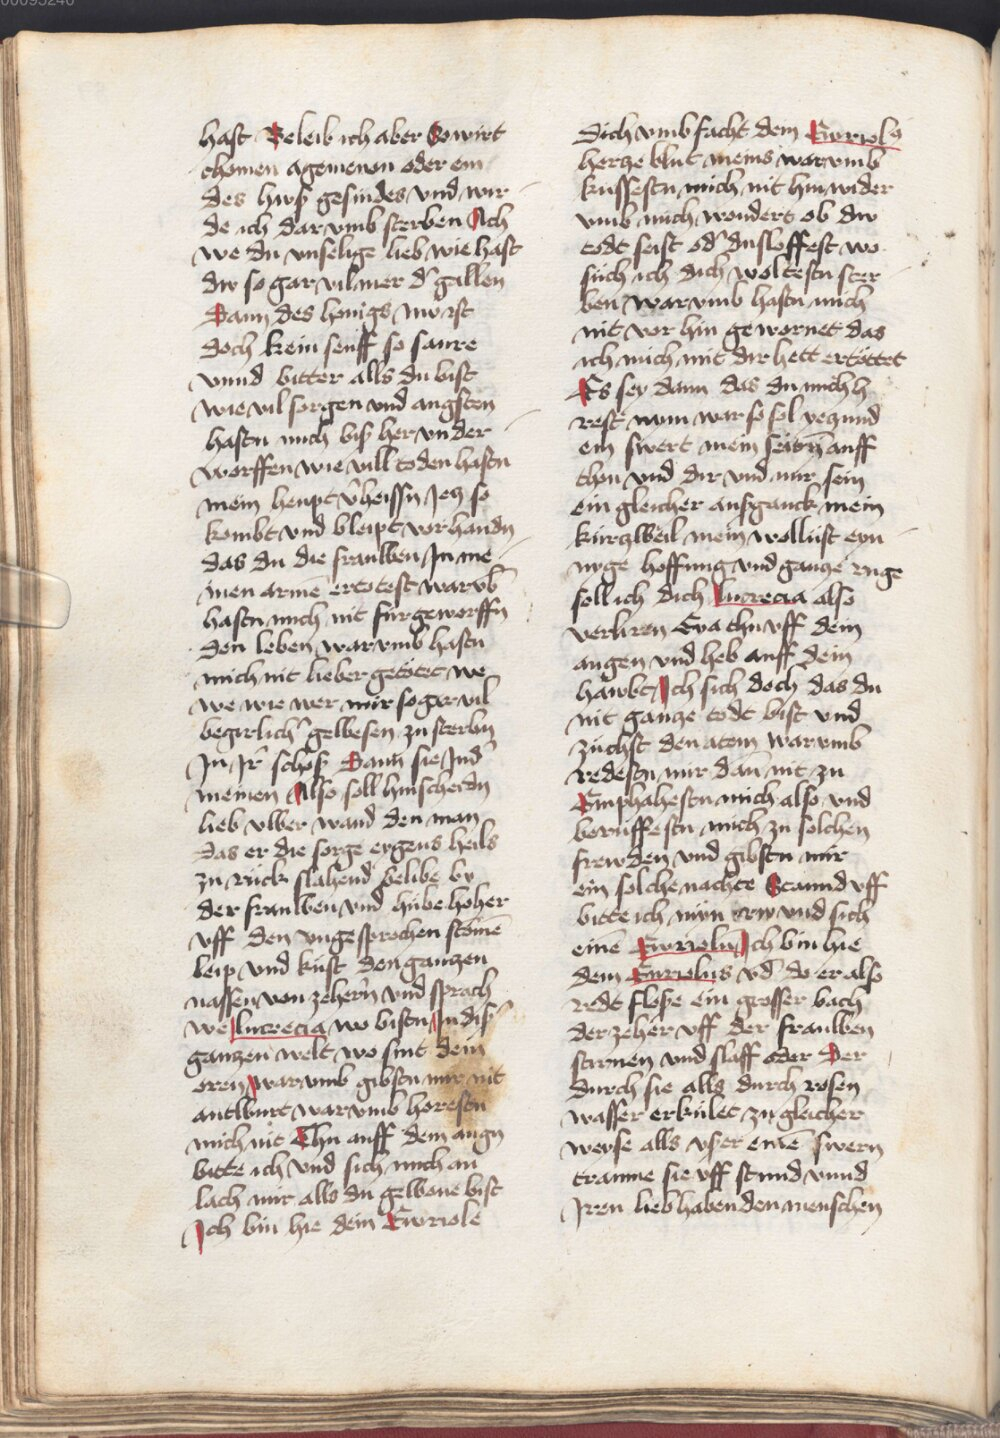 00095240
hast Beleib ich aber So wirt
chomen agmenon oder ein
des hwß gesindes vnd wir
de ich dar vmb sterben Ach
we du vnselige lieb wie hast
dw so gar vil mer d' gallen
Dann des honigs Nw ist
doch kein senff so saure
vnnd bitter alls du bist
wie vil sorgen vnd angsten
hastu mich biß her vnder
worffen wie vill toden hastu
mein heupt v'heissn Jez so
kombt vnd bleipt vorhandn
das du die frawben Jn me
inen arme ertotest warvb
hastu mich nit furgeworffn
den leben warvmb hastu
mich nit lieber getotet we
we wie wer mir so gar vil
begirlich' gewesen zu sterbn
Jn Jr schoß Dann sie Jnd'
meinen Also soll hinscheidn
lieb vber wand den man
das er die sorge eygens heils
zu Ruck slahend belibe by
der frawben vnd hube hoher
vff den vngesprochen stome
leip vnd kust den ganzen
nassen von zehern vnd sprach
we lucrecia wo bistu Jn diß'
ganzen welt wo sint dein
oren warvmb gibstu mir nit
antburt warvmb horestu
mich nit Thu auff dein augn
bitte ich vnd sich mich an
lach mir alls du gewone bist
Jch bin hie dein Ewriole
Dich vmb facht dein Ewriol9
hertze blut meins warvmb
kussestu mich nit hin wider
vmb mich wonders ob dw
todt seist od' du sloffest wo
such ich dich woltestu ster
ben warvmb hastu mich
nit vor hin gewornet das
ich mich mit dir hett ertottet
Es sey dann das du mich h
rest nym war so sol yezund
ein swert mein seiten auff
thon vnd dir vnd mir sein
ein gleicher außganck mein
kurzweil mein wollust eyn
nyge hoffnung vnd ganze ruge
soll ich dich lucrecia also
verliren Eya thu vff dein
augen vnd heb auff dein
hawbt Jch sich doch das du
nit gancze todt bist vnd
zuchst den atem warvmb
redestu mir dan nit zu
Emphahestu mich also vnd
beruffestu mich zu solchen
frewden vnd gibstu mir
ein solche nachte Stannd vff
bitte ich mein rw vnd sich
eine Ewriolu Jch bin hie
dein Eurolus vd' do er also
redt floße ein grosser bach
der zeher vff der frawben
stirnen vnd slaff oder Der
durch sie alls durch rosen
wasser erkulet zu gleicher
weyse alls vßer eine swern
traume sie vff stund vnnd
Jren lieb habenden menschen